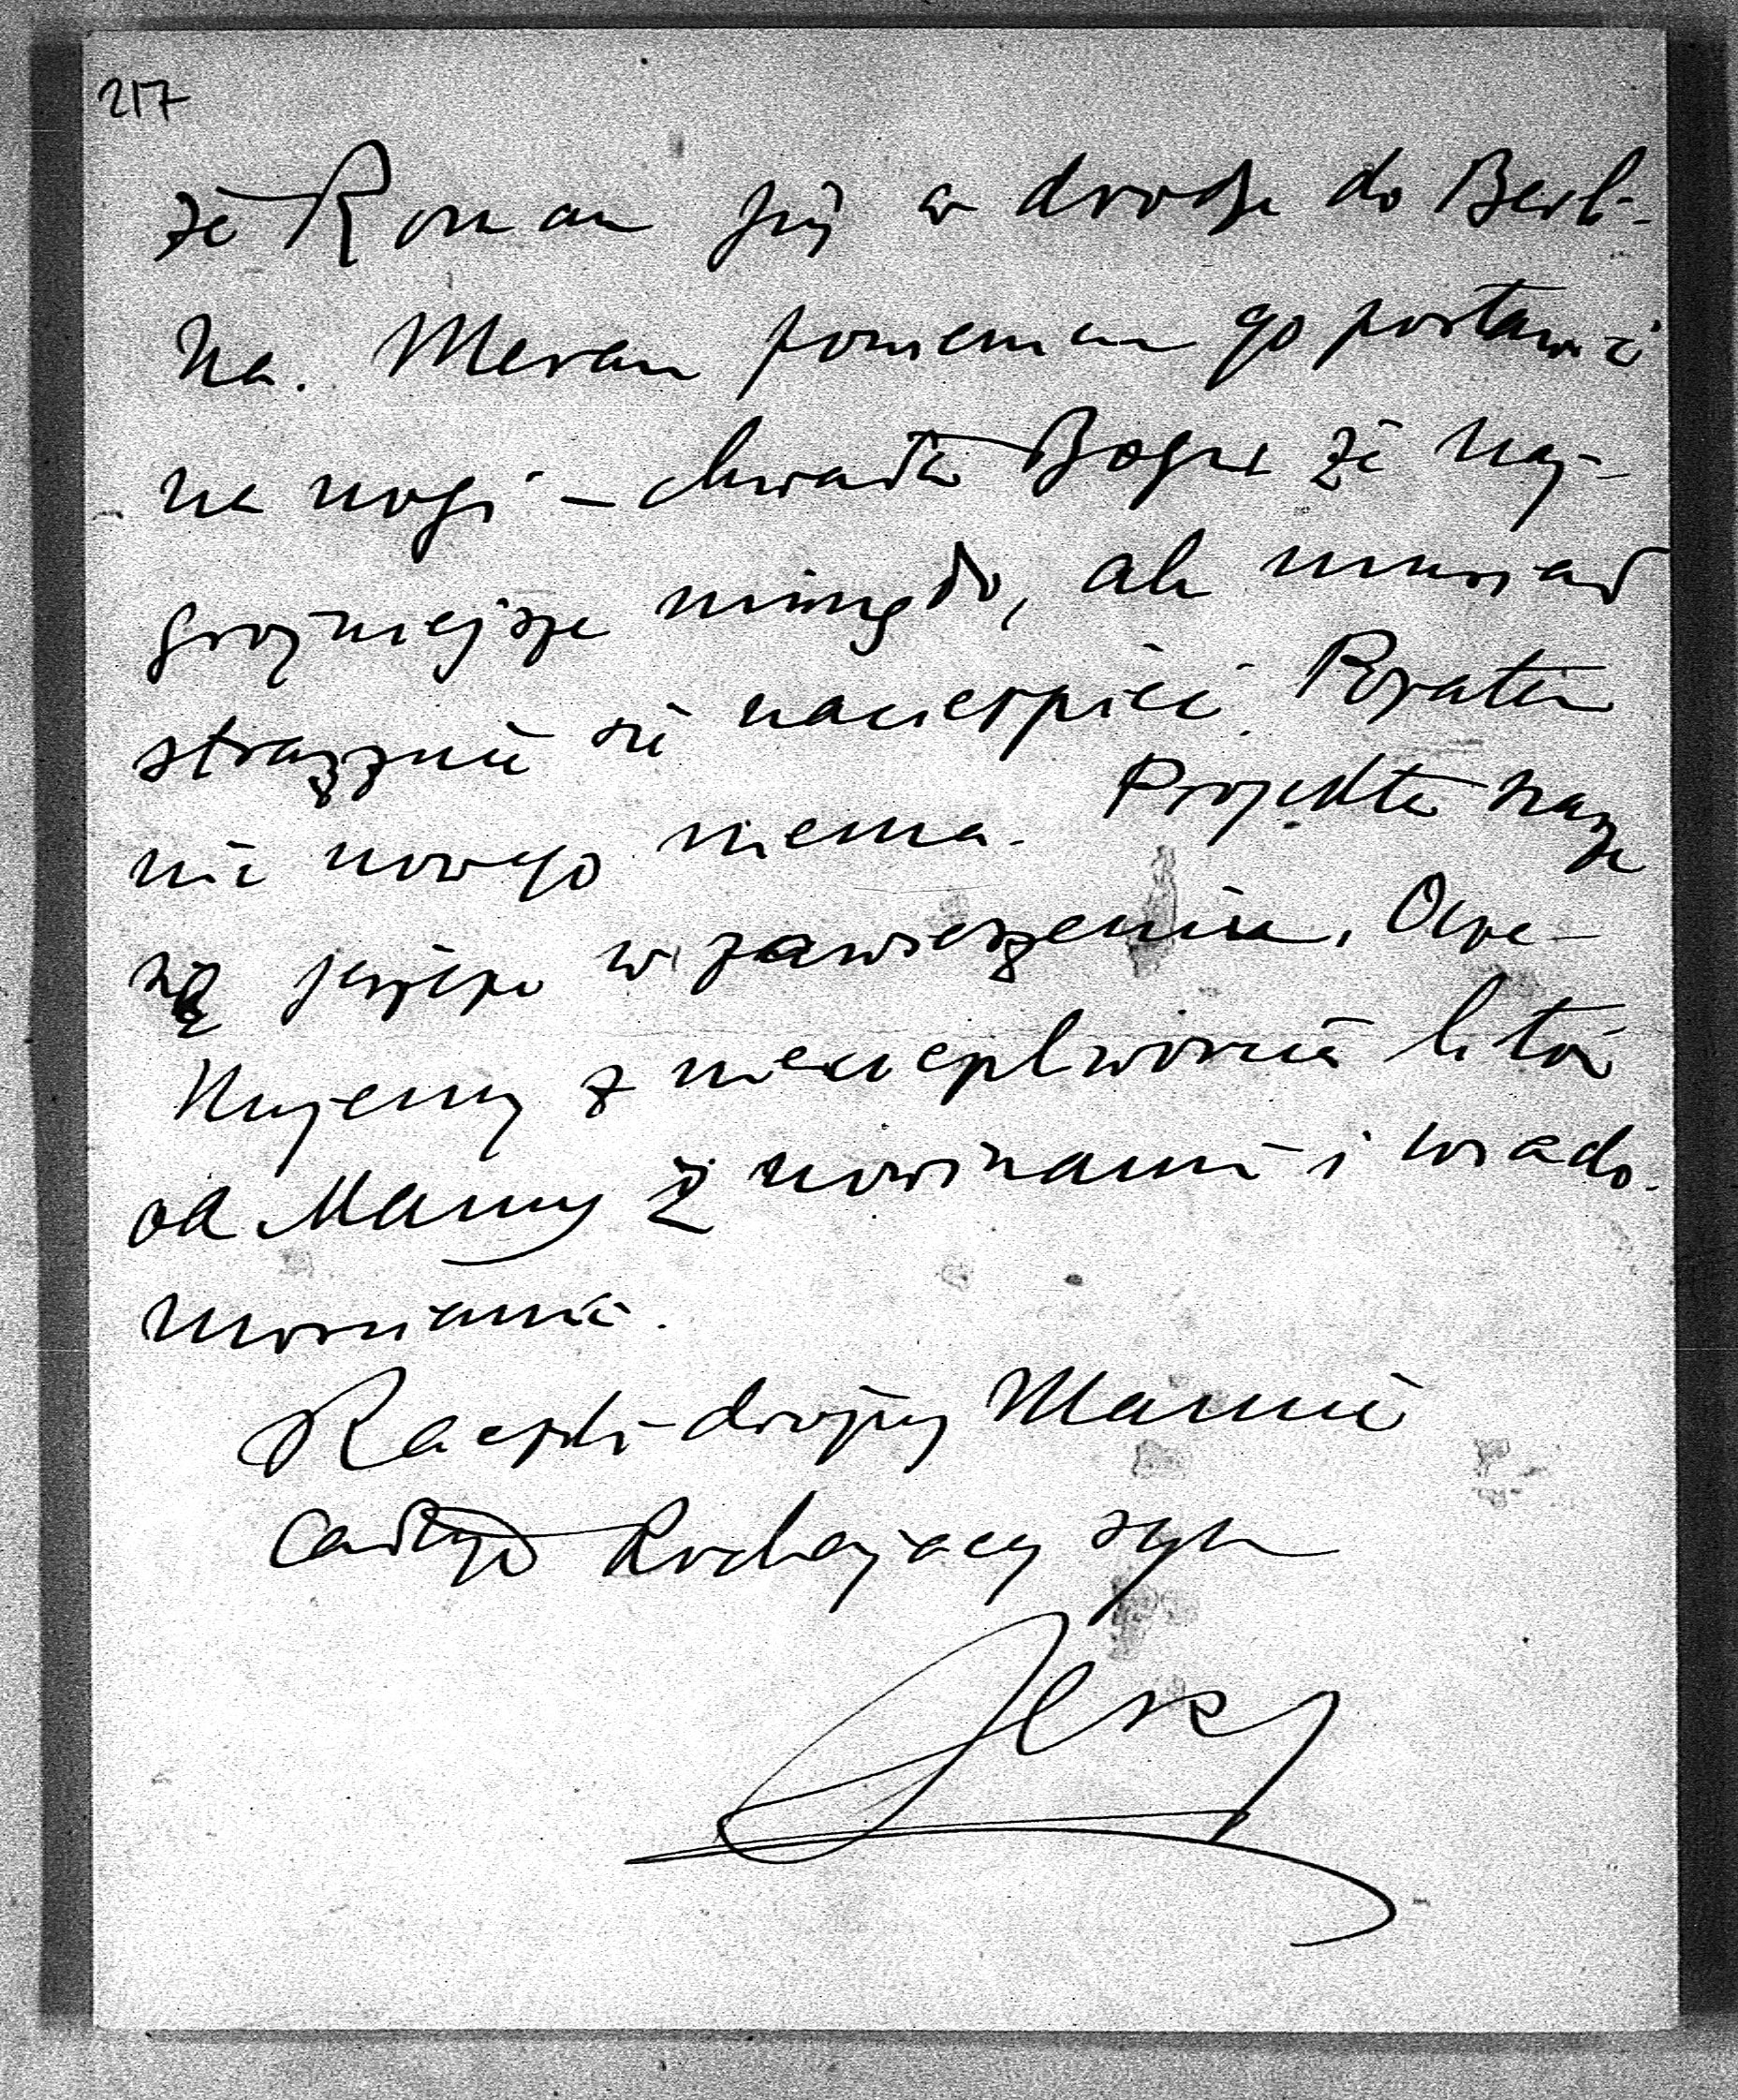 217
że Roman już w drodze do Berli-
na. Meran powinien go postawić
na nogi – chwała Bogu że naj-
groźniejsze minęło, ale musiał
strasznie się nacierpieć. Pozatem
nic nowego niema. Projekta nasze
są jeszcze w zawieszeniu. Ocze-
kujemy z niecierpliwością listów
od Mamy z nowinami i wiado-
mościami.
Rączki drogiej Mamie
całuję kochający syn
Jerzy